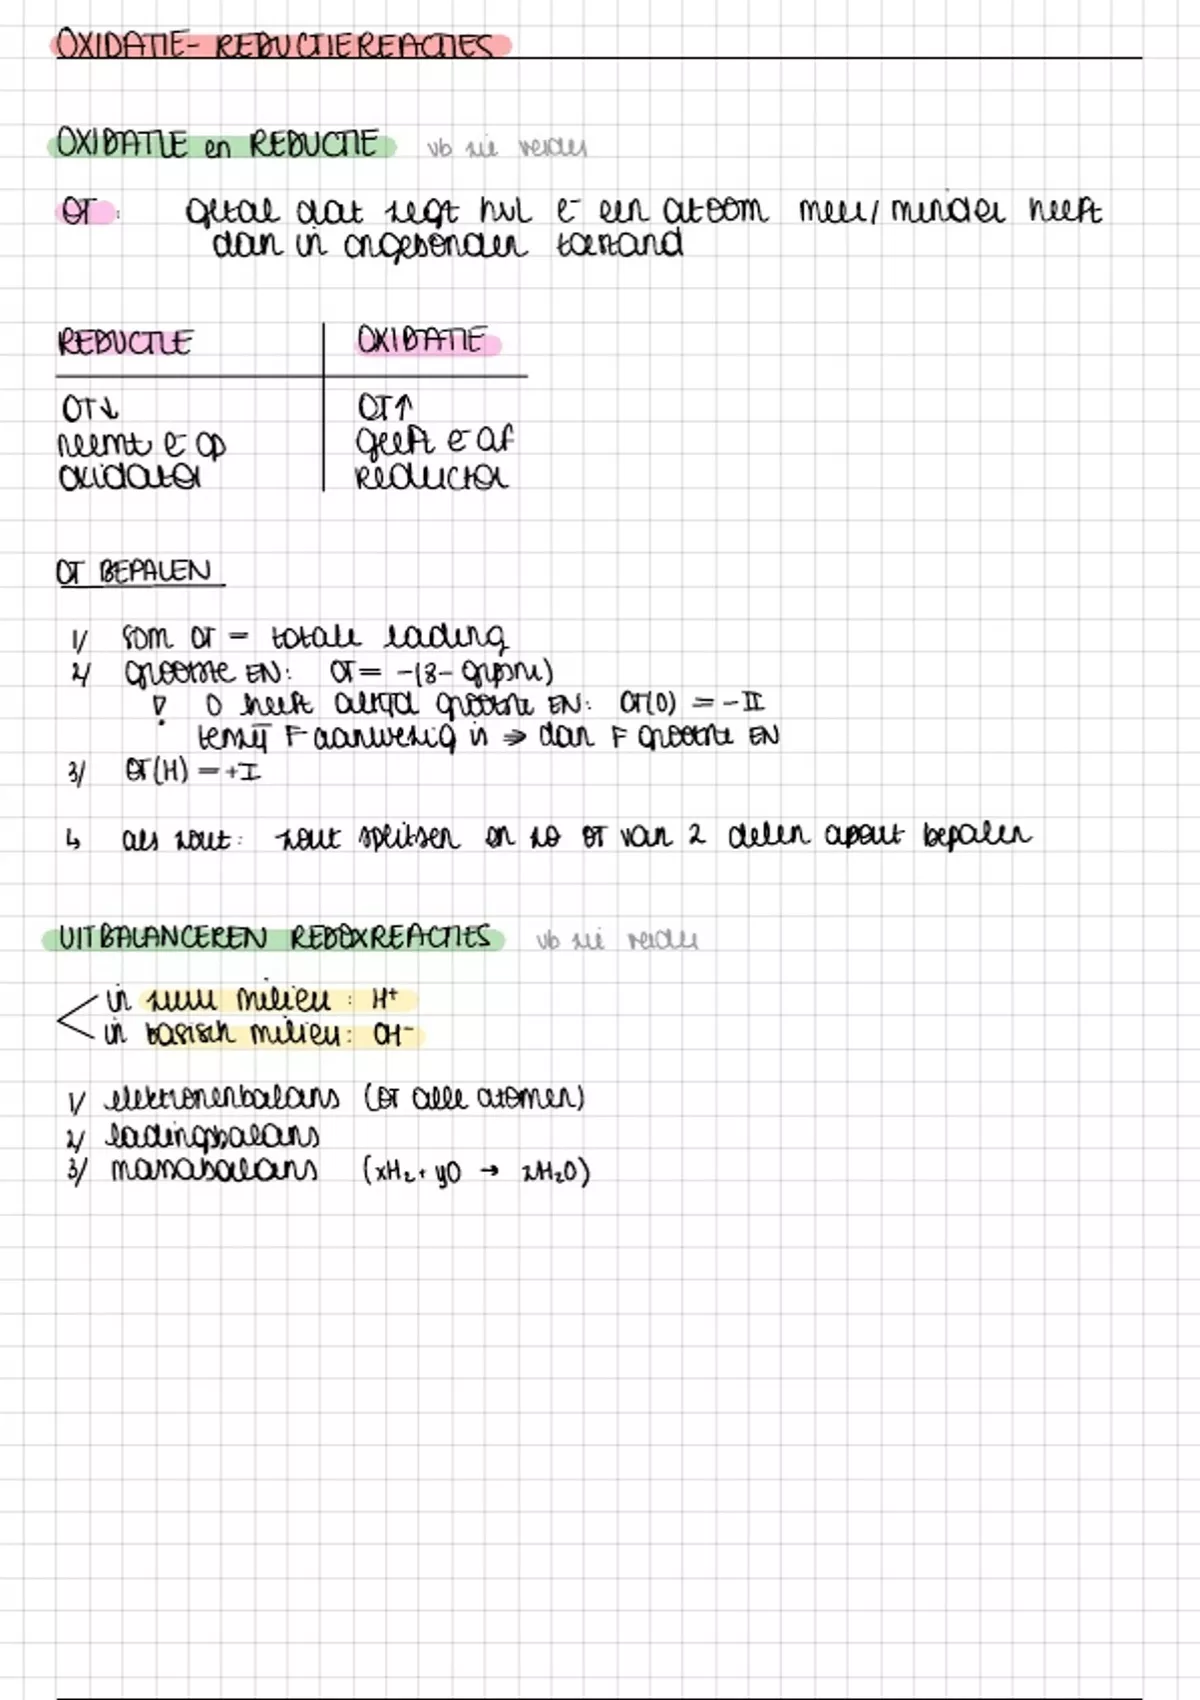 OXIDATIE- REDUCTIEREACTIES
OXIDATIE en REDUCTIE vb zie verder
OT: getal dat zegt hvl e- een atoom meer/minder heeft
dan in ongebonden toestand
REDUCTIE OXIDATIE
OT↓ OT↑
neemt e- op geeft e- af
oxidator reductor
OT BEPALEN
1/ som OT = totale lading
2/ grootste EN: OT = -(8- groepsnr)
! O heeft altijd grootste EN: OT(O) = -II
tenzij F aanwezig is => dan F grootste EN
3/ OT(H) = +I
↳ als zout: zout splitsen en zo OT van 2 delen apart bepalen
UITBALANCEREN REDOXREACTIES vb zie verder
in zuur milieu: H+
in basisch milieu: OH-
1/ elektronenbalans (OT alle atomen)
2/ ladingsbalans
3/ massabalans (xH₂ + yO → zH₂O)